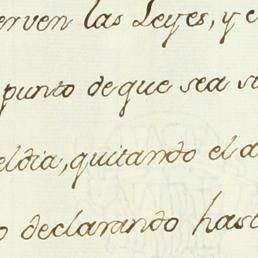 erven las Leyes, y e
punto de que sea s
eldia, quitando el a
o declarando hast